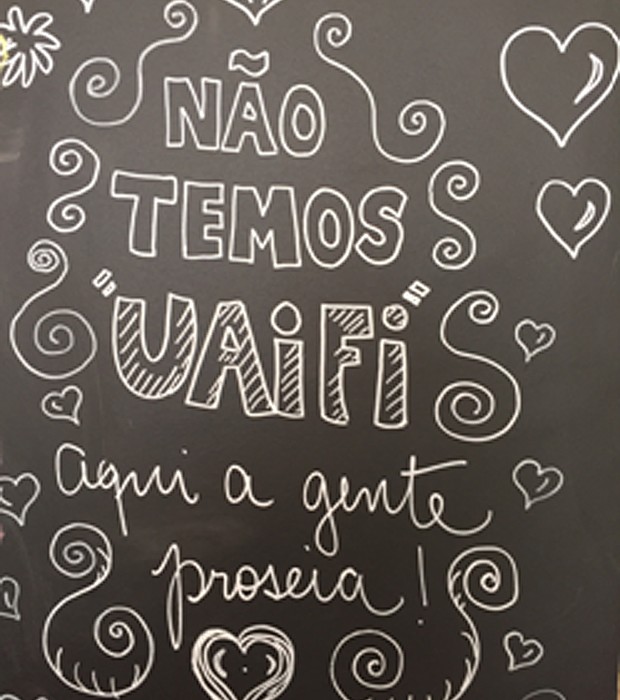 NÃO
TEMOS
"UAiFi"
aqui a gente
proseia!